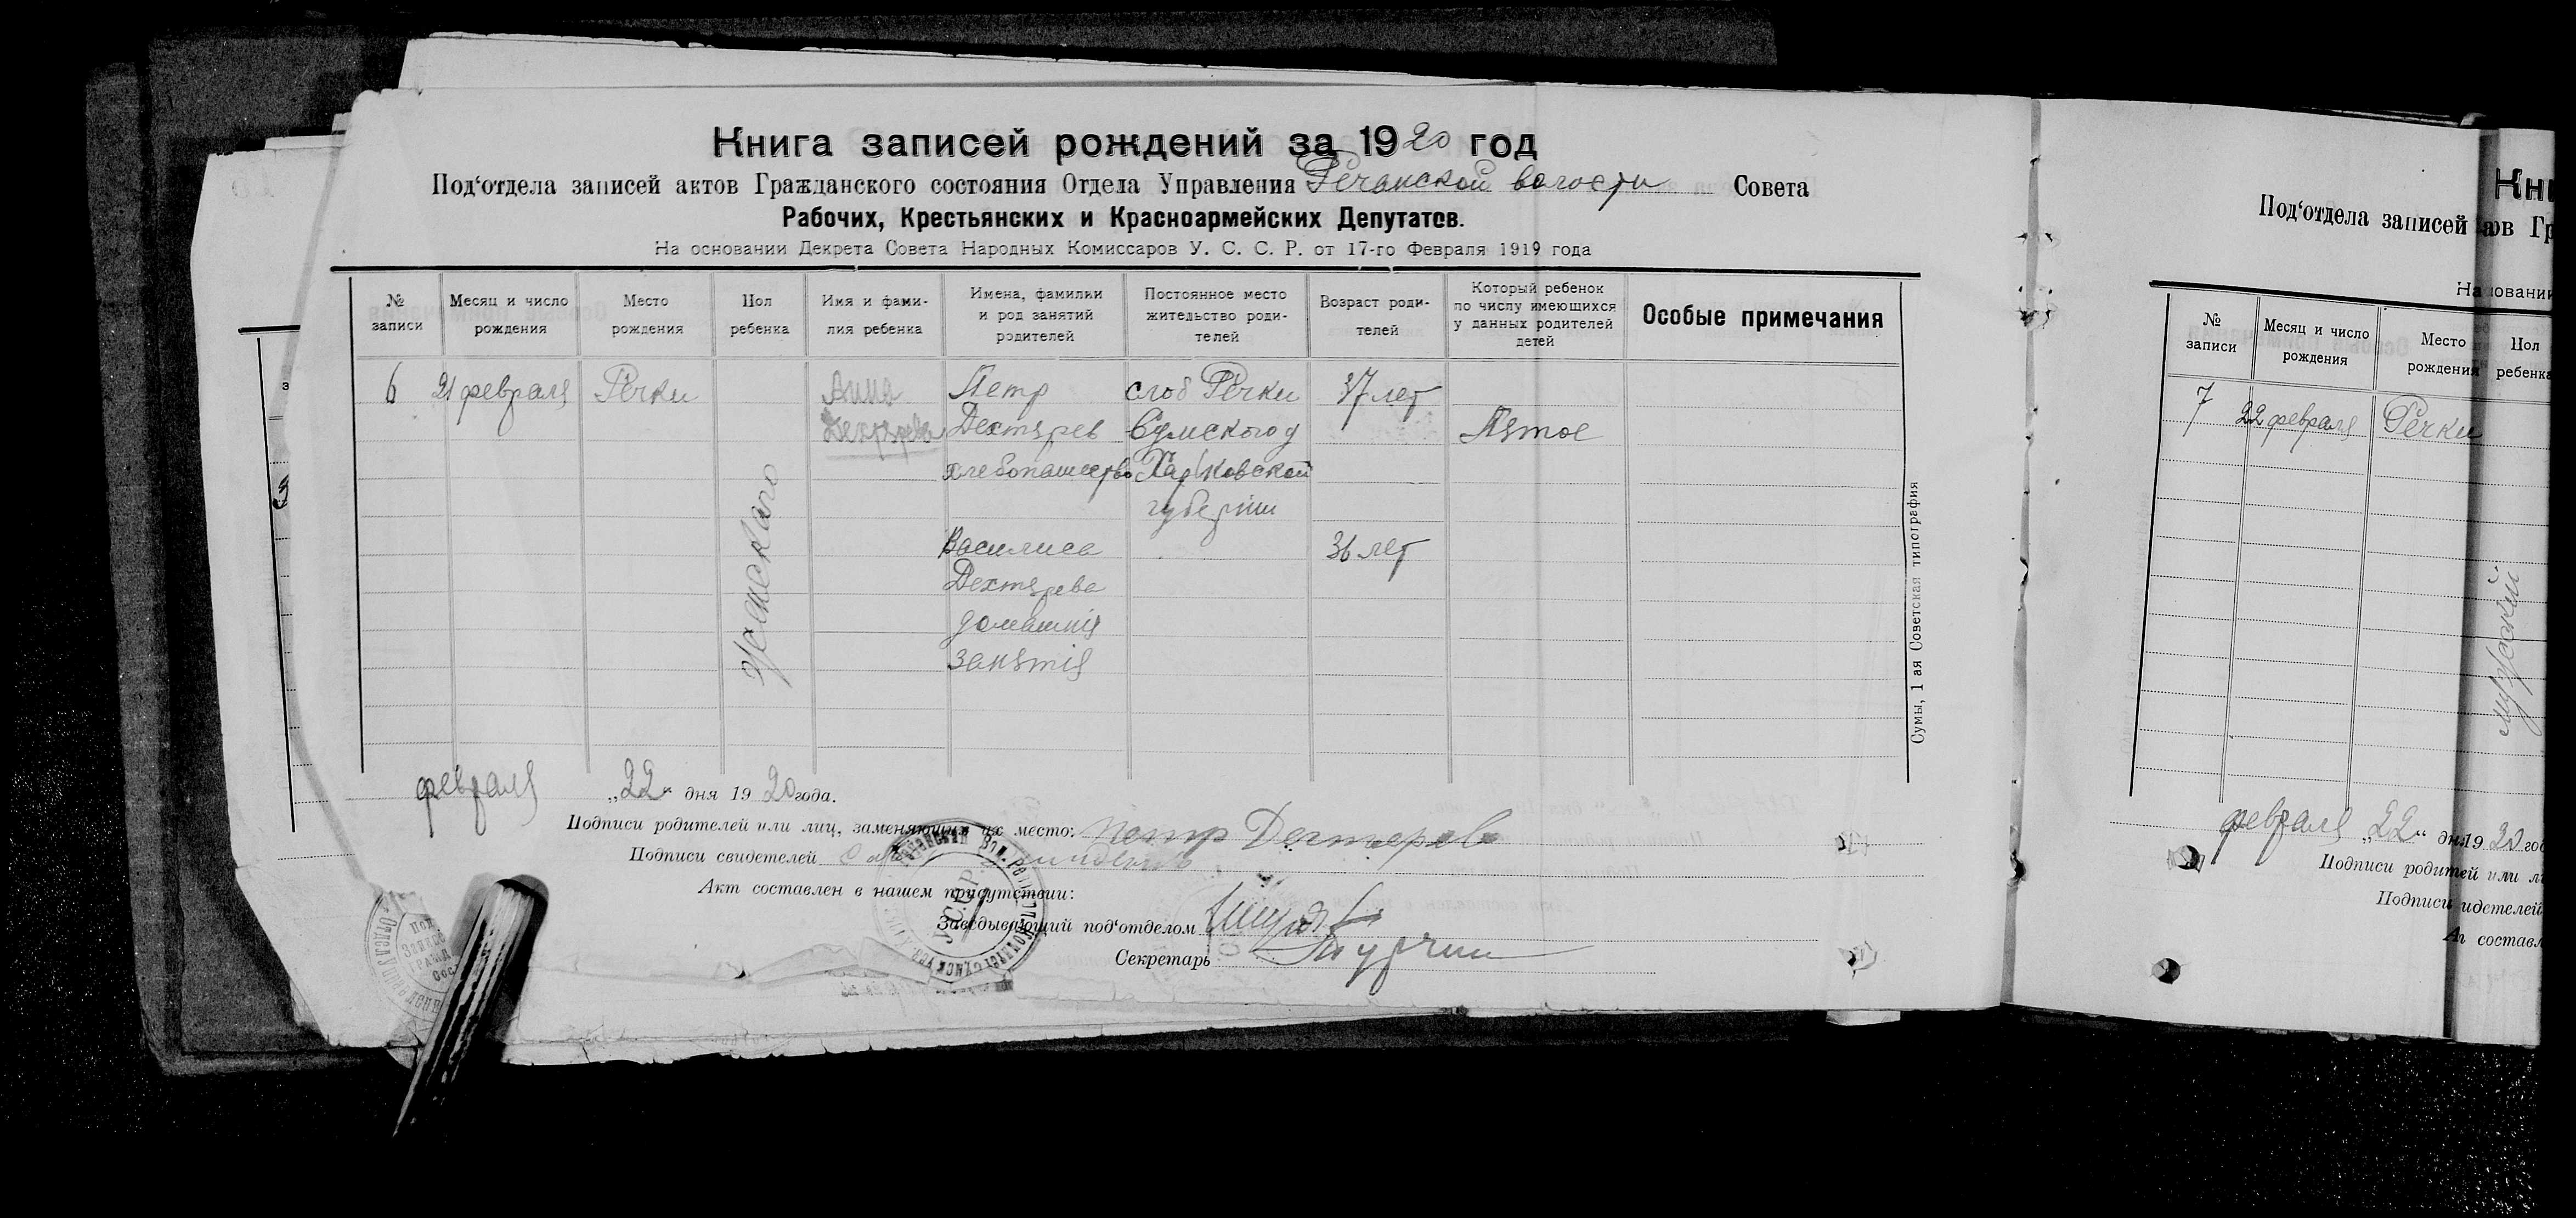 Книга записей рождений за 1920 год
Под‘отдела записей актов Гражданского состояния Отдела Управления Речанской волости Совета
Рабочих, Крестьянских и Красноармейских Депутатов.
На основании Декрета Совета Народных Комиссаров У. С. С. Р. от 17-го Февраля 1919 года
№ записи
Месяц и число рождения
Место рождения
Пол ребенка
Имя и фами-
лия ребенка
Имена, фамилии
и род занятий
родителей
Постоянное место
жительство роди-
телей
Возраст роди-
телей
Который ребенок
по числу имеющихся
у данных родителей
детей
Особые примечания
6
21 февраля
Речки
Женскаго
Анна
Дехтярева
Петр
Дехтярев
хлебопашество
Василиса
Дехтярева
домашнія
занятія
слоб Речки
Сумского у
Харьковской
губерніи
37 лет
36 лет
Пятое
февраля „22“ дня 1920 года.
Подписи родителей или лиц, заменяющих их место: Петр Дегтярев
Подписи свидетелей
Акт составлен в нашем присутствии:
Заведывающий под‘отделом
Секретарь
Сумы, 1 ая Советская типография
У.С.С.Р.
Кни
Под‘отдела записей а ов Гр
На основании
№ записи
Месяц и число
рождения
Место
рождения
Пол
ребенка
7
22 февраля
Речки
мужский
февраля „22“ дн 1920 год
Подписи родителей или ли